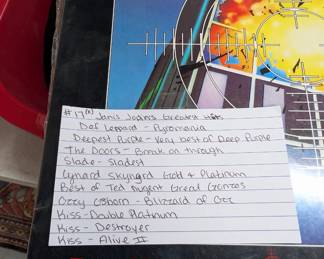 #17(R) Janis Joplins Greatest Hits
Def Leppard - Pyromania
Deepest Purple - Very best of Deep Purple
The Doors - Break on through
Slade - Sladest
Lynard Skynard Gold & Platinum
Best of Ted Nugent Great Gonzos
Ozzy Osborn - Blizzard of Ozz
Kiss - Double Platinum
Kiss - Destroyer
Kiss - Alive II